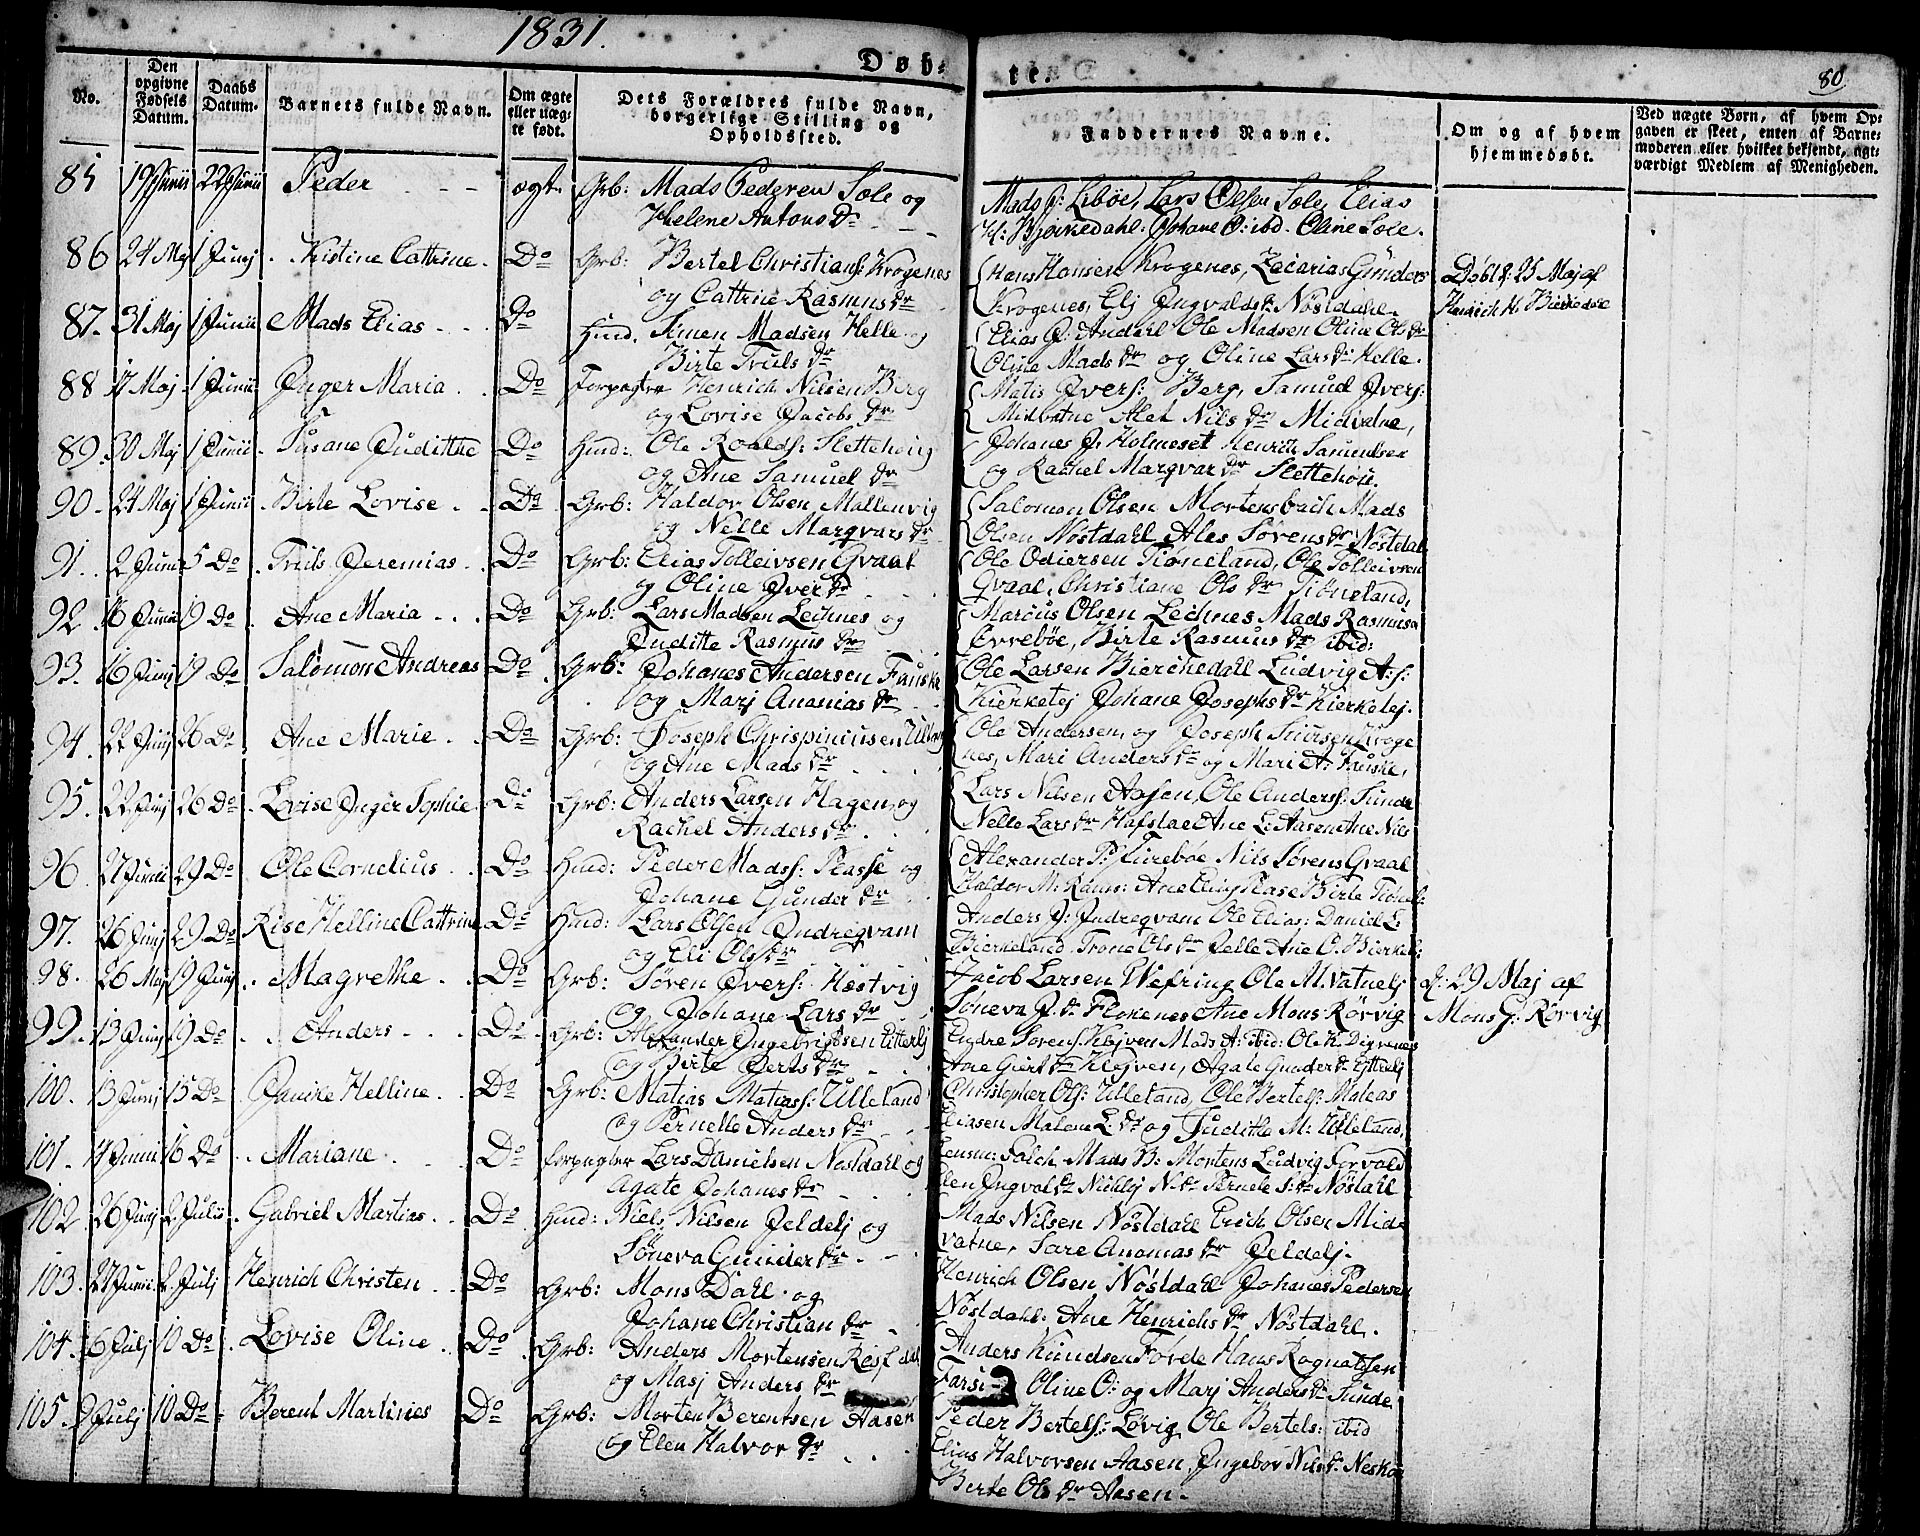 1831.
Døb-
te.
80
No.
Den opgivne Fødsels Datum.
Daabs Datum.
Barnets fulde Navn.
Om ægte eller uægte født.
Dets Forældres fulde Navn, borgerlige Stilling og Opholdssted.
Faddernes Navne.
Om og af hvem hjemmedøbt.
Ved uægte Børn, af hvem Opgaven er skeet, enten af Barnemoderen eller hvilket bekjendt, agtværdigt Medlem af Menigheden.
85 19 Junii 22 Junii Peder ægt. Grb: Mads Pedersen Sole og
Helene Antons Dr
Mads P: Lebøe, Lars Olsen Sole, Elias
H: Bjørkedahl. Johane O: ibd. Oline Sole.
86 24 Maj 1 Junij Kistine Cattrine Do Grb: Bertel Christians: Krogenes
og Cattrine Rasmus Dr
Hans Hansen Krogenes, Zacarias Gunders
Krogenes, Elj Ingvalds Dr Nøstdahl.
Døbt d: 25 Maj af
Henrich H. Bierkedal
87. 31 Maj 1 Junii Mads Elias Do Huud. Simen Madsen Helle og
Birte Truls Dr
Elias P: Andahl Ole Madsen Oline Ols Dr
Oline Mads Dr og Oline Lars Dr Helle.
88 17 Maj 1 Junii Inger Maria Do Forpagter Henrich Nilsen Berg
og Lovise Jacobs Dr
Matis Ivers: Berg, Samuel Ivers:
Midvatne Alet Nils Dr Midvatne,
89. 30 Maj 1 Junii Susane Judithe Do Huud: Ole Roalds: Slettehoug
og Ane Samuel Dr
Johanes J. Holmeset Henrich Samuelsen
og Rachel Marqvar Dr Slettehoug.
90. 24 Maj 1 Junii Birte Lovise Do Grb: Haldor Olsen Mallenvig
og Nelle Marqvars Dr
Salomon Olsen Mortensbach Mads
Olsen Nøstdahl Ales Sørens Dr Nøstdal
91. 2 Junii 5 Do Truls Jeremias Do Grb: Elias Tolleivsen Gvaal
og Oline Iver Dr
Ole Odiersen Tiøneland, Ole Tolleivsen
Gvaal, Christiane Ols Dr Tiøneland,
92. 16 Junii 19 Do Ane Maria Do Grb: Lars Madsen Lechnes og
Juditte Rasmus Dr
Marcus Olsen Lechnes Mads Rasmusen
Evrebøe, Birte Rasmus Dr ibid:
93. 16 Junij 19 Do Salomon Andreas Do Grb: Johanes Andersen Fauske
og Marj Ananias Dr
Ole Larsen Bierchedall Ludvig A:s:
Kierketej Johane Josephs Dr Kierketej.
94. 22 Junij 26 Do Ane Marie Do Grb: Joseph Chrispiniusen
og Ane Mads Dr
Ole Andersen og Joseph Siursen Kroge
nes, Mari Anders Dr og Mari A: Fauske,
95. 22 Junij 26 Do Lovise Inger Sophie Do Grb: Anders Larsen Hagen og
Rachel Anders Dr
Lars Nilsen Aasen, Ole Anders: Sunde
Nelle Lars Dr Hafstae Ane L: Aasen Ane Nils
96. 27 Junii 29 Do Ole Cornelius Do Huud: Peder Mads: Plasse og
Johane Gunder Dr
Alexander P: Furebøe Nils Sørens Gvaal
Haldor M: Rams: Ane Elling Plase Birte Tiønel:
97. 26 Junij 29 Do Rise Helline Cattrine Do Huud: Lars Olsen Indreqvam
og Eli Ols Dr
Anders J: Indreqvam Ole Elias: Daniel L:
Bierkeland. Trone Ols Dr Jelle Ane O. Bierkel:
98. 26 Maj 19 Junij Magrethe Do Grb: Søren Ivers: Hestvig
og Johane Lars Dr
Jacob Larsen Wefring Ole M. Vatnelj
Søneva J. Dr Florenes Ane Mons Rørvig
d: 29 Maj af
Mons G: Rørvig
99. 13 Junij 19 Do Anders Do Grb: Alexander Ingebrigtsen Eitterlj
og Birte Peders Dr
Endre Sørens: Klejven Mads A: ibid: Ole K. Digrenes
Ane Giert Dr Klejven, Agate Gunder Dr Eitterlj
100. 13 Junij 15 Do Janike Helline Do Grb: Matias Matias: Ulleland
og Pernelle Anders Dr
Christopher Ols: Ulleland, Ole Bertels: Mateas
Eliasen Malene L: Dr og Judithe M: Ulleland,
101. 14 Junii 16 Do Mariane Do forpagter Lars Danielsen Nøstdahl og
Agate Johanes Dr
Lensm: Falch Mads B: Mortens Ludvig Forvald
Elen Ingval Dr Nichlej N: Dr Pernele S: Dr Nøstahl
102 26 Junij 2 Julii Gabriel Martias Do Huud: Niels Nilsen Jeldelj og
Søneva Gunder Dr
Mads Nilsen Nøstdahl Erich Olsen Mid-
vatne, Sare Ananias Dr Jeldelj.
103. 27 Junii 2. Julj Henrich Christen Do Grb: Mons Dahl og
Johane Christian Dr
Henrich Olsen Nøstdahl Johanes Pedersen
Nøstdahl. Ane Henrichs Dr Nøstdahl.
104. 6 Julj 10 Do Lovise Oline Do Grb: Anders Mortensen
og Masj Anders Dr
Anders Knudsen Førde Hans Rognaldsen
Oline O: og Marj Anders Dr Sunde
105. 9 Julj 10 Do Berent Martines Do Grb: Morten Berentsen Aasen
og Elen Halvor Dr
Peder Bertels: Løvig Ole Bertels: ibid
Elias Halvorsen Aasen, Ingebor Nils Dr
Birte Ols Dr Aasen.